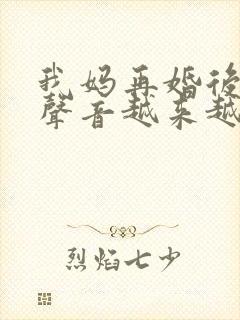 我妈再婚後
聲音越来越
烈焰七少